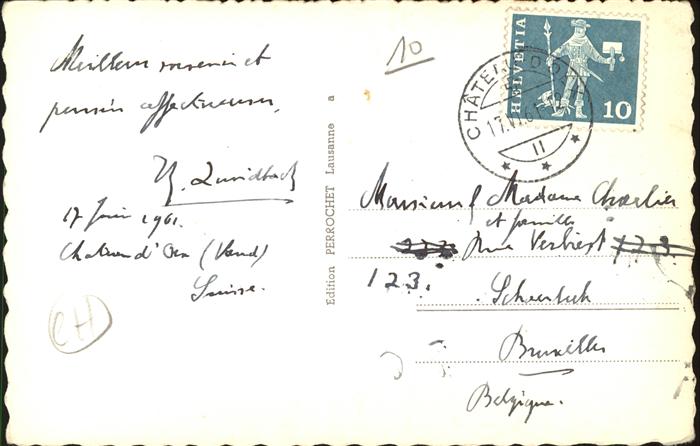 Meilleur souvenir et
pensées affectueuses,
17 Juin 1961.
Chateau d'Oex (Vaud)
Suisse.
CH
Edition PERROCHET Lausanne a
10
HELVETIA
10
CHÂTEAU-D'OEX
17.VI.61
II
Monsieur et Madame Charlier
et famille
Rue Verbist 123
123.
Bruxelles
Belgique.